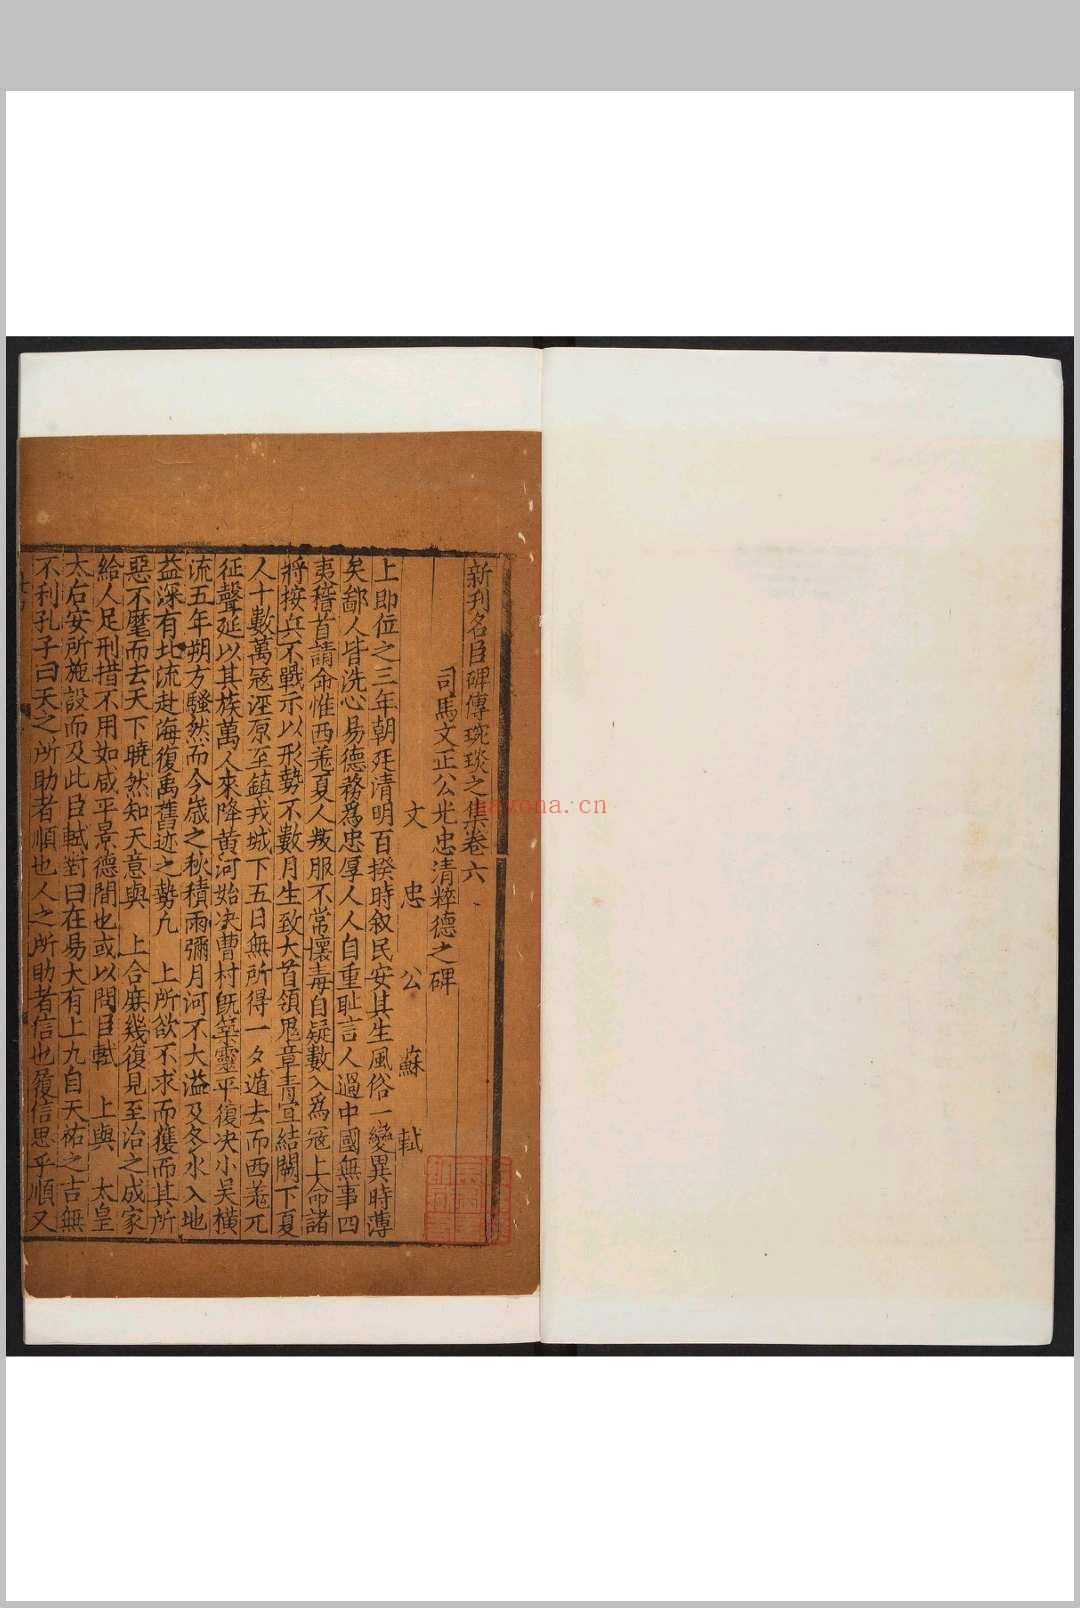 新刊名臣碑傳琬琰之集卷六
司馬文正公光忠清粹德之碑
文忠公蘇軾
上即位之三年朝廷清明百揆時敘民安其生風俗一變異時薄
矣鄙人皆洗心易德務為忠厚人人自重耻言人過中國無事四
夷稽首請命惟西羗夏人叛服不常懷毒自疑數入為冦上命諸
將按兵不戰示以形勢不數月生致大首領鬼章青宜結闕下夏
人十數萬冦涇原至鎮戎城下五日無所得一夕遁去而西羗兀
征聲延以其族萬人來降黄河始决曹村既築靈平復决小吴橫
流五年朔方騷然而今歲之秋積雨彌月河不大溢及冬水入地
益深有北流赴海復禹舊迹之勢凢　上所欲不求而獲而其所
惡不麾而去天下曉然知天意與　上合庶幾復見至治之成家
給人足刑措不用如咸平景德間也或以問臣軾　上與　太皇
太后安所施設而及此臣軾對曰在易大有上九自天祐之吉無
不利孔子曰天之所助者順也人之所助者信也履信思乎順又
nayona.cn